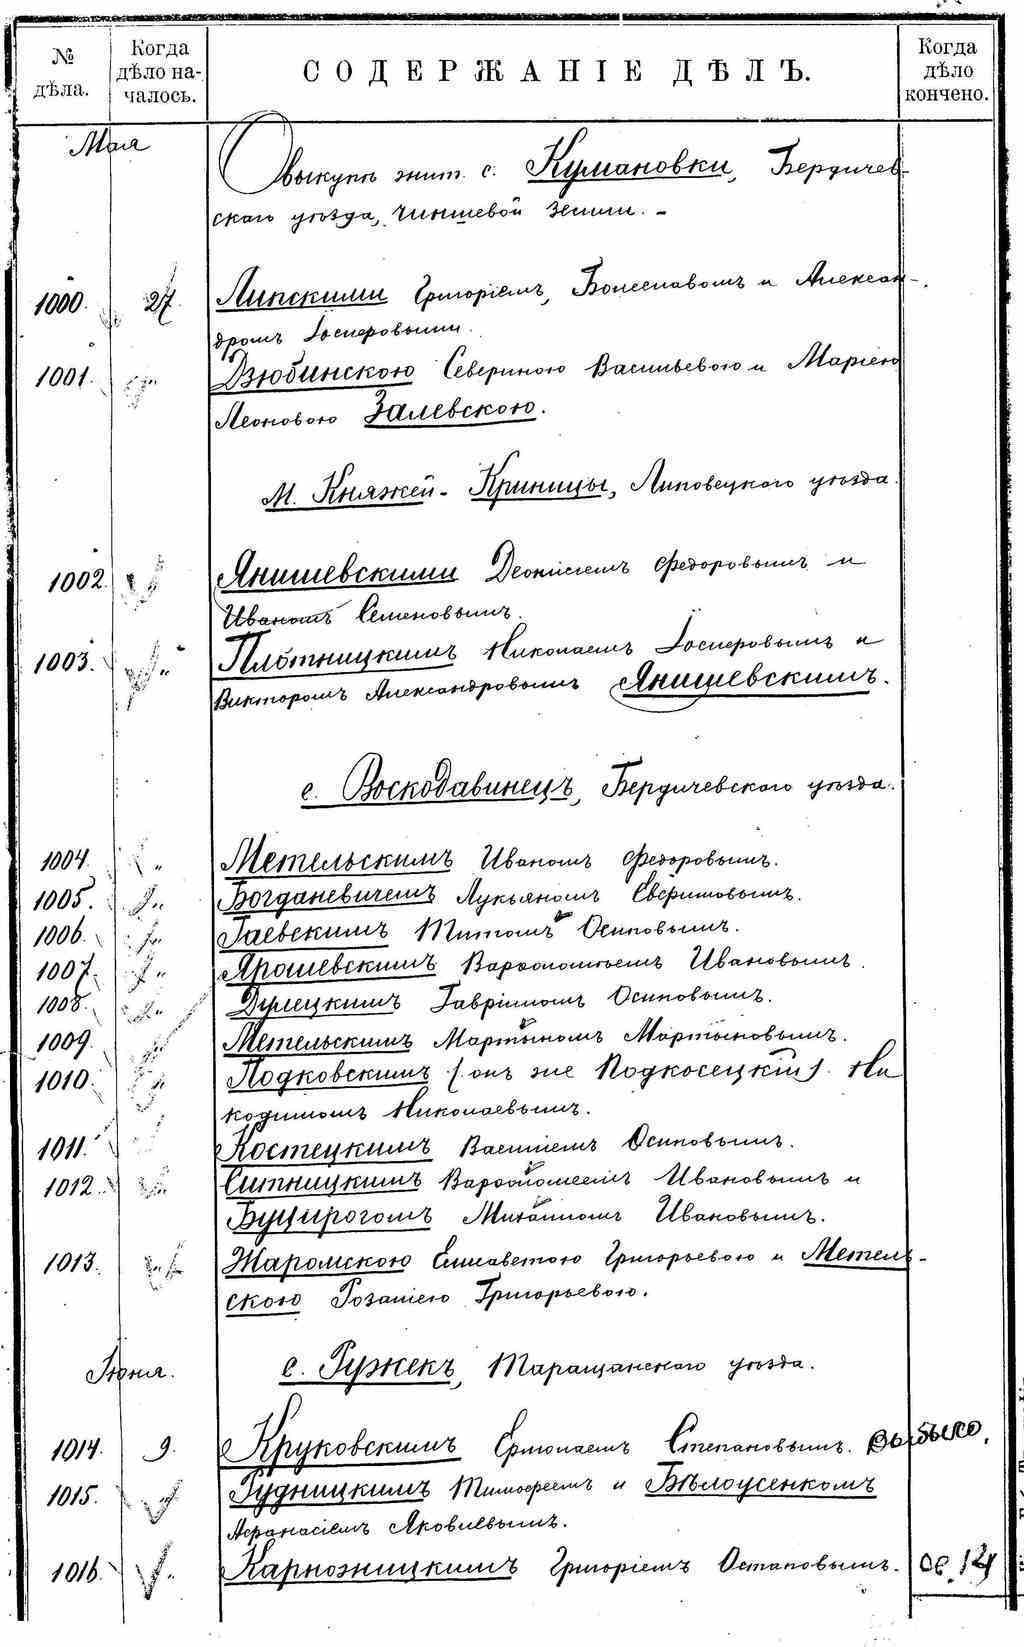 № дѣла. Когда дѣло началось. СОДЕРЖАНІЕ ДѢЛЪ. Когда дѣло кончено.
Мая
О выкупѣ жит. с. Кумановки, Бердичев-
скаго уѣзда, чиншевой земли. -
1000. 27. Липскими Григоріемъ, Болеславомъ и Алексан-
дромъ Іосифовыми.
1001. " Дзюбинскою Севериною Васильевою и Маріею
Леоновою Залевскою.
м. Княжей-Криницы, Липовецкаго уѣзда.
1002. " Янишевскими Деонисіемъ Федоровымъ и
Иваномъ Семеновымъ.
1003. " Плотницкимъ Николаемъ Іосифовымъ и
Викторомъ Александровымъ Янишевскимъ.
с. Воскодавинецъ, Бердичевскаго уѣзда.
1004. " Метельскимъ Иваномъ Федоровымъ.
1005. " Богданевичемъ Лукьяномъ
1006. " Гаевскимъ Титомъ Осиповымъ.
1007. " Ярошевскимъ Варфоломѣемъ Ивановымъ.
1008. " Дулецкимъ Гавріиломъ Осиповымъ.
1009. " Метельскимъ Мартыномъ Мартыновымъ.
1010. " Подковскимъ (онъ же Подкосецкій) Ни
кодимомъ Николаевымъ.
1011. Костецкимъ Василіемъ Осиповымъ.
1012. " Ситницкимъ Варфоломеемъ Ивановымъ и
Буцирогомъ Михаиломъ Ивановымъ.
1013. " Жаромскою Елисаветою Григорьевою и Метель-
скою Розаліею Григорьевою.
Іюня. с. Ружекъ, Таращанскаго уѣзда.
1014. 9. Круковскимъ Ермолаемъ Степановымъ. Выбыло.
1015. " Рудницкимъ Тимофеемъ и Бѣлоусенкомъ
Афанасіемъ Яковлевымъ.
1016. " Карножицкимъ Григоріемъ Остаповымъ.